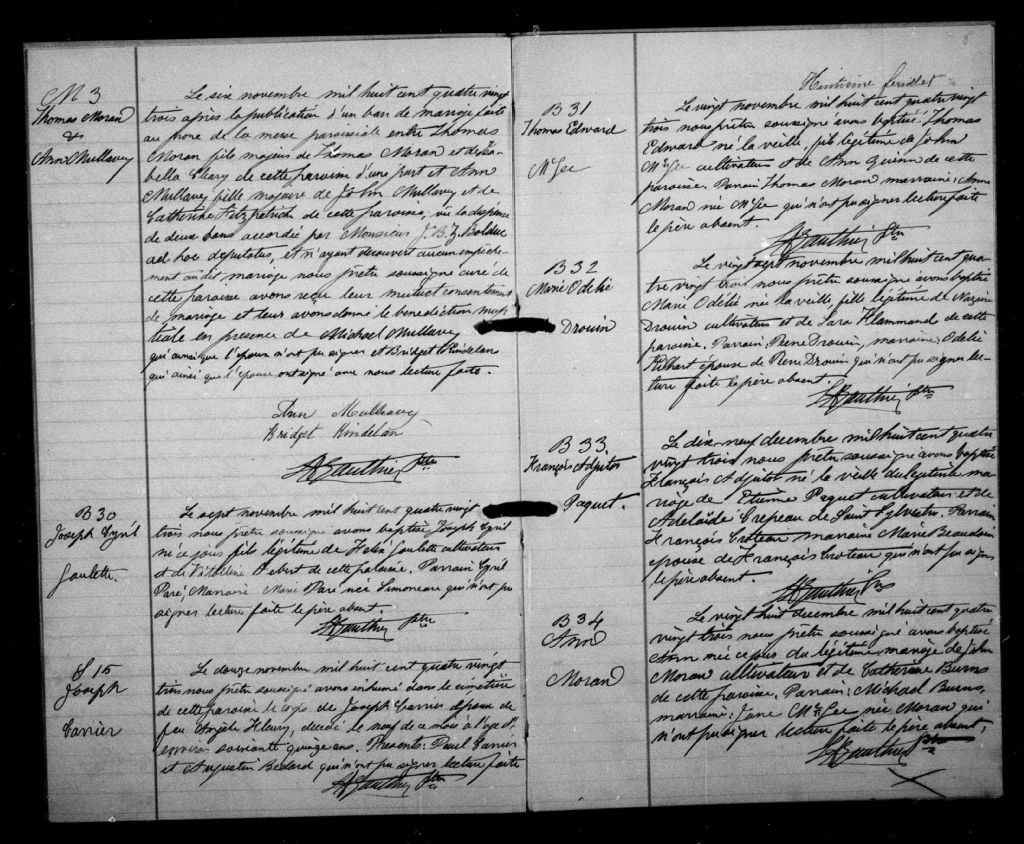 M 3
Thomas Moran
&
Ann Mullavey
Le six novembre mil huit cent quatre vingt
trois après la publication d'un ban de mariage faite
au prone de la messe paroissiale entre Thomas
Moran fils majeur de Thomas Moran et d'Isa-
bella Cleary de cette paroisse d'une part et Ann
Mullavey fille majeure de John Mullavey et de
Catherine Fitzpatrick de cette paroisse, vu la dispense
de deux bans accordée par Monsieur J. B. Z. Bolduc
ad hoc deputatus, et n'ayant decouvert aucun empêche-
ment au dit mariage nous prêtre soussigné curé de
cette paroisse avons reçu leur mutuel consentement
de mariage et leur avons donné la benediction nup-
tiale en presence de Michael Mullavey
qui ainsi que l'epoux n'ont pu signer et Bridget Kindelan
qui ainsi que l'épouse ont signé avec nous lecture faite.
Ann Mulleavy
Bridget Kindelan
Gauthier Ptre
B 30
Joseph Cyril
Goulette.
Le sept novembre mil huit cent quatre vingt
trois nous prêtre soussigné avons baptisé Joseph Cyril
né ce jour fils légitime de Goulette cultivateur
et de Hebert de cette paroisse. Parrain Cyril
Paré, Marraine Marie Paré née Simoneau qui n'ont pu
signer lecture faite le père absent.
Gauthier Ptre
S 15
Joseph
Carrier
Le douze novembre mil huit cent quatre vingt
trois nous prêtre soussigné avons inhumé dans le cimetière
de cette paroisse le corps de Joseph Carrier époux de
feu Angèle Fleury, decedé le neuf de ce mois à l'age d'
environ soixante quinze ans. Presents: Paul Carrier
et Augustin Bedard qui n'ont pu signer lecture faite
Gauthier Ptre
8
Huitième feuillet
B 31
Thomas Edward
McGee
Le vingt novembre mil huit cent quatre vingt
trois nous prêtre soussigné avons baptisé Thomas
Edward né la veille, fils légitime de John
McGee cultivateur et de Ann Quinn de cette
paroisse. Parrain Thomas Moran marraine: Anne
Moran née McGee qui n'ont pu signer lecture faite
le père absent.
Gauthier Ptre
B 32
Marie Odelie
Drouin
Le vingt sept novembre mil huit cent qua-
tre vingt trois nous prêtre soussigné avons baptisé
Marie Odelie née la veille, fille légitime de Nazaire
Drouin cultivateur et de Sara Flammand de cette
paroisse. Parrain: René Drouin, marraine: Odelie
épouse de René Drouin qui n'ont pu signer lec-
ture faite le père absent.
Gauthier Ptre
B 33.
François Adjutor
Paquet.
Le dix-neuf decembre mil huit cent quatre
vingt trois nous prêtre soussigné avons baptisé
François Adjutor né la veille du légitime ma-
riage de Etienne Paquet cultivateur et de
Adelaïde Crepeau de Saint Sylvestre. Parrain
François Croteau marraine Marie Beaudoin
épouse de François Croteau qui n'ont pu signer
le père absent.
Gauthier Ptre
B 34
Ann
Moran
Le vingt huit decembre mil huit cent quatre
vingt trois nous prêtre soussigné avons baptisé
Ann née ce jour du légitime mariage de John
Moran cultivateur et de Catherine Burns
de cette paroisse. Parrain: Michael Burns,
marraine: Jane McGee née Moran qui
n'ont pu signer lecture faite le père absent,
Gauthier Ptre